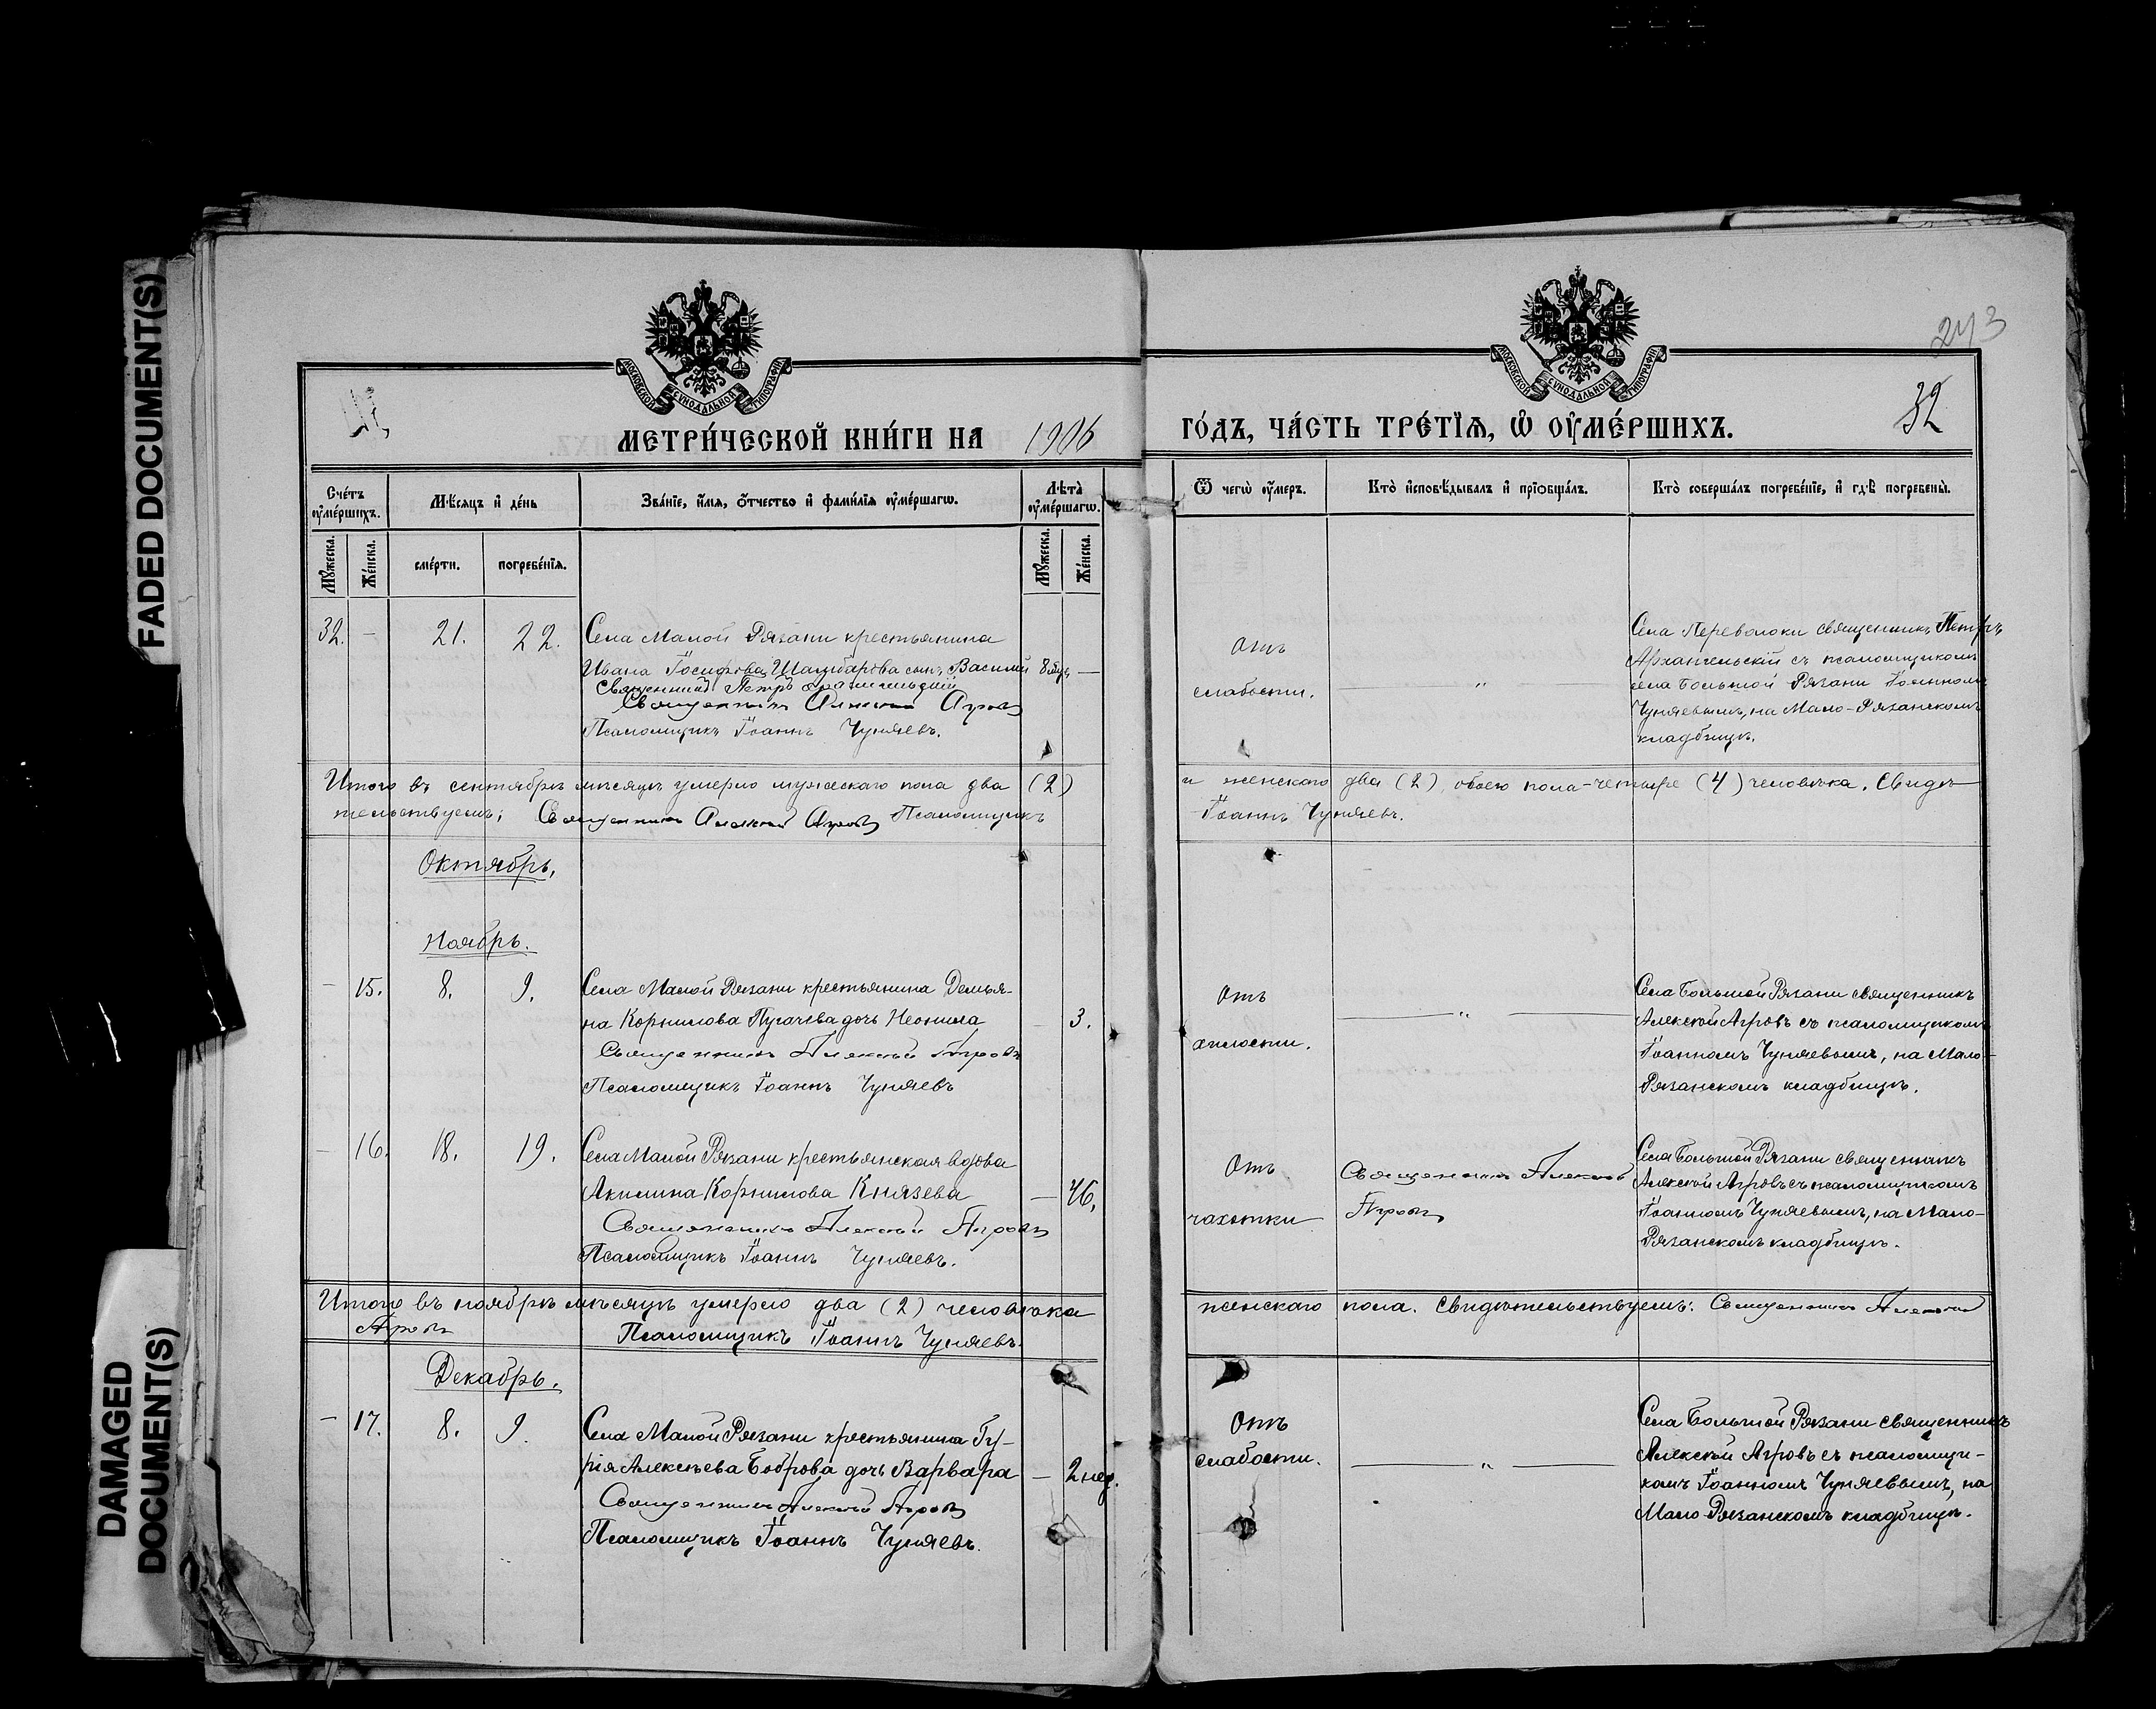 FADED DOCUMENT(S)
DAMAGED
DOCUMENT(S)
243
32
МОСКОВСКОЙ СУНОДАЛЬНОЙ ТИПОГРАФІИ
МОСКОВСКОЙ СУНОДАЛЬНОЙ ТИПОГРАФІИ
МЕТРИ́ЧЕСКОЙ КНИ́ГИ НА 1906
ГО́ДЪ, ЧА́СТЬ ТРЕ́ТІѦ, Ѡ҆ ОУ҆МЕ́РШИХЪ.
Сче́тъ оу҆ме́ршихъ.
Мѣ́сяцъ и҆ де́нь
Зва́ніе, и҆́мѧ, ѻ҆́тчество и҆ фами́лїѧ оу҆ме́ршагѡ.
Лѣта̀ оу҆ме́ршагѡ.
Ѿ чегѡ̀ оу҆́меръ.
Кто̀ и҆сповѣ́дывалъ и҆ прїѡбща́лъ.
Кто̀ соверша́лъ погребе́нїе, и҆ гдѣ̀ погребены̀.
Мꙋ́жеска.
Же́нска.
сме́рти.
погребе́нїѧ.
Мꙋ́жеска.
Же́нска.
32. - 21. 22. Села Малой Рязани крестьянина
Ивана Іосифова сынъ Василій 8 —
Священникъ Петръ Архангельскій
Священникъ Алексій Агровъ
Псаломщикъ Іоаннъ Чуняевъ.
Отъ
слабости.
— " —
Села Переволоки священникъ Петръ
Архангельскій съ псаломщикомъ
села Большой Рязани Іоанномъ
Чуняевымъ, на Мало-Рязанскомъ
кладбищѣ.
Итого въ сентябрѣ мѣсяцѣ умерло мужескаго пола два (2) и женскаго два (2), обоего пола-четыре (4) человѣка. Свидѣ-
тельствуемъ: Священникъ Алексій Агровъ Псаломщикъ Іоаннъ Чуняевъ.
Октябрь.
Ноябрь.
- 15. 8. 9. Села Малой Рязани крестьянина Демья-
на Корнилова Пугачева дочь Неонила 3.
Священникъ Алексій Агровъ
Псаломщикъ Іоаннъ Чуняевъ
Отъ
хилости.
— " —
Села Большой Рязани священникъ
Алексій Агровъ съ псаломщикомъ
Іоанномъ Чуняевымъ, на Мало-
Рязанскомъ кладбищѣ.
- 16. 18. 19. Села Малой Рязани крестьянская вдова
Акилина Корнилова Князева — 46.
Священникъ Алексій Агровъ
Псаломщикъ Іоаннъ Чуняевъ.
Отъ
чахотки
Священникъ Алексій
Агровъ
Села Большой Рязани священникъ
Алексій Агровъ съ псаломщикомъ
Іоанномъ Чуняевымъ, на Мало-
Рязанскомъ кладбищѣ.
Итого въ ноябрѣ мѣсяцѣ умерло два (2) человѣка женскаго пола. Свидѣтельствуемъ: Священникъ Алексій
Агровъ Псаломщикъ Іоаннъ Чуняевъ.
Декабрь.
- 17. 8. 9. Села Малой Рязани крестьянина Гу-
рія Алексѣева Боброва дочь Варвара — 2 нед.
Священникъ Алексій Агровъ
Псаломщикъ Іоаннъ Чуняевъ.
Отъ
слабости.
— " —
Села Большой Рязани священникъ
Алексій Агровъ съ псаломщи-
комъ Іоанномъ Чуняевымъ, на
Мало-Рязанскомъ кладбищѣ.